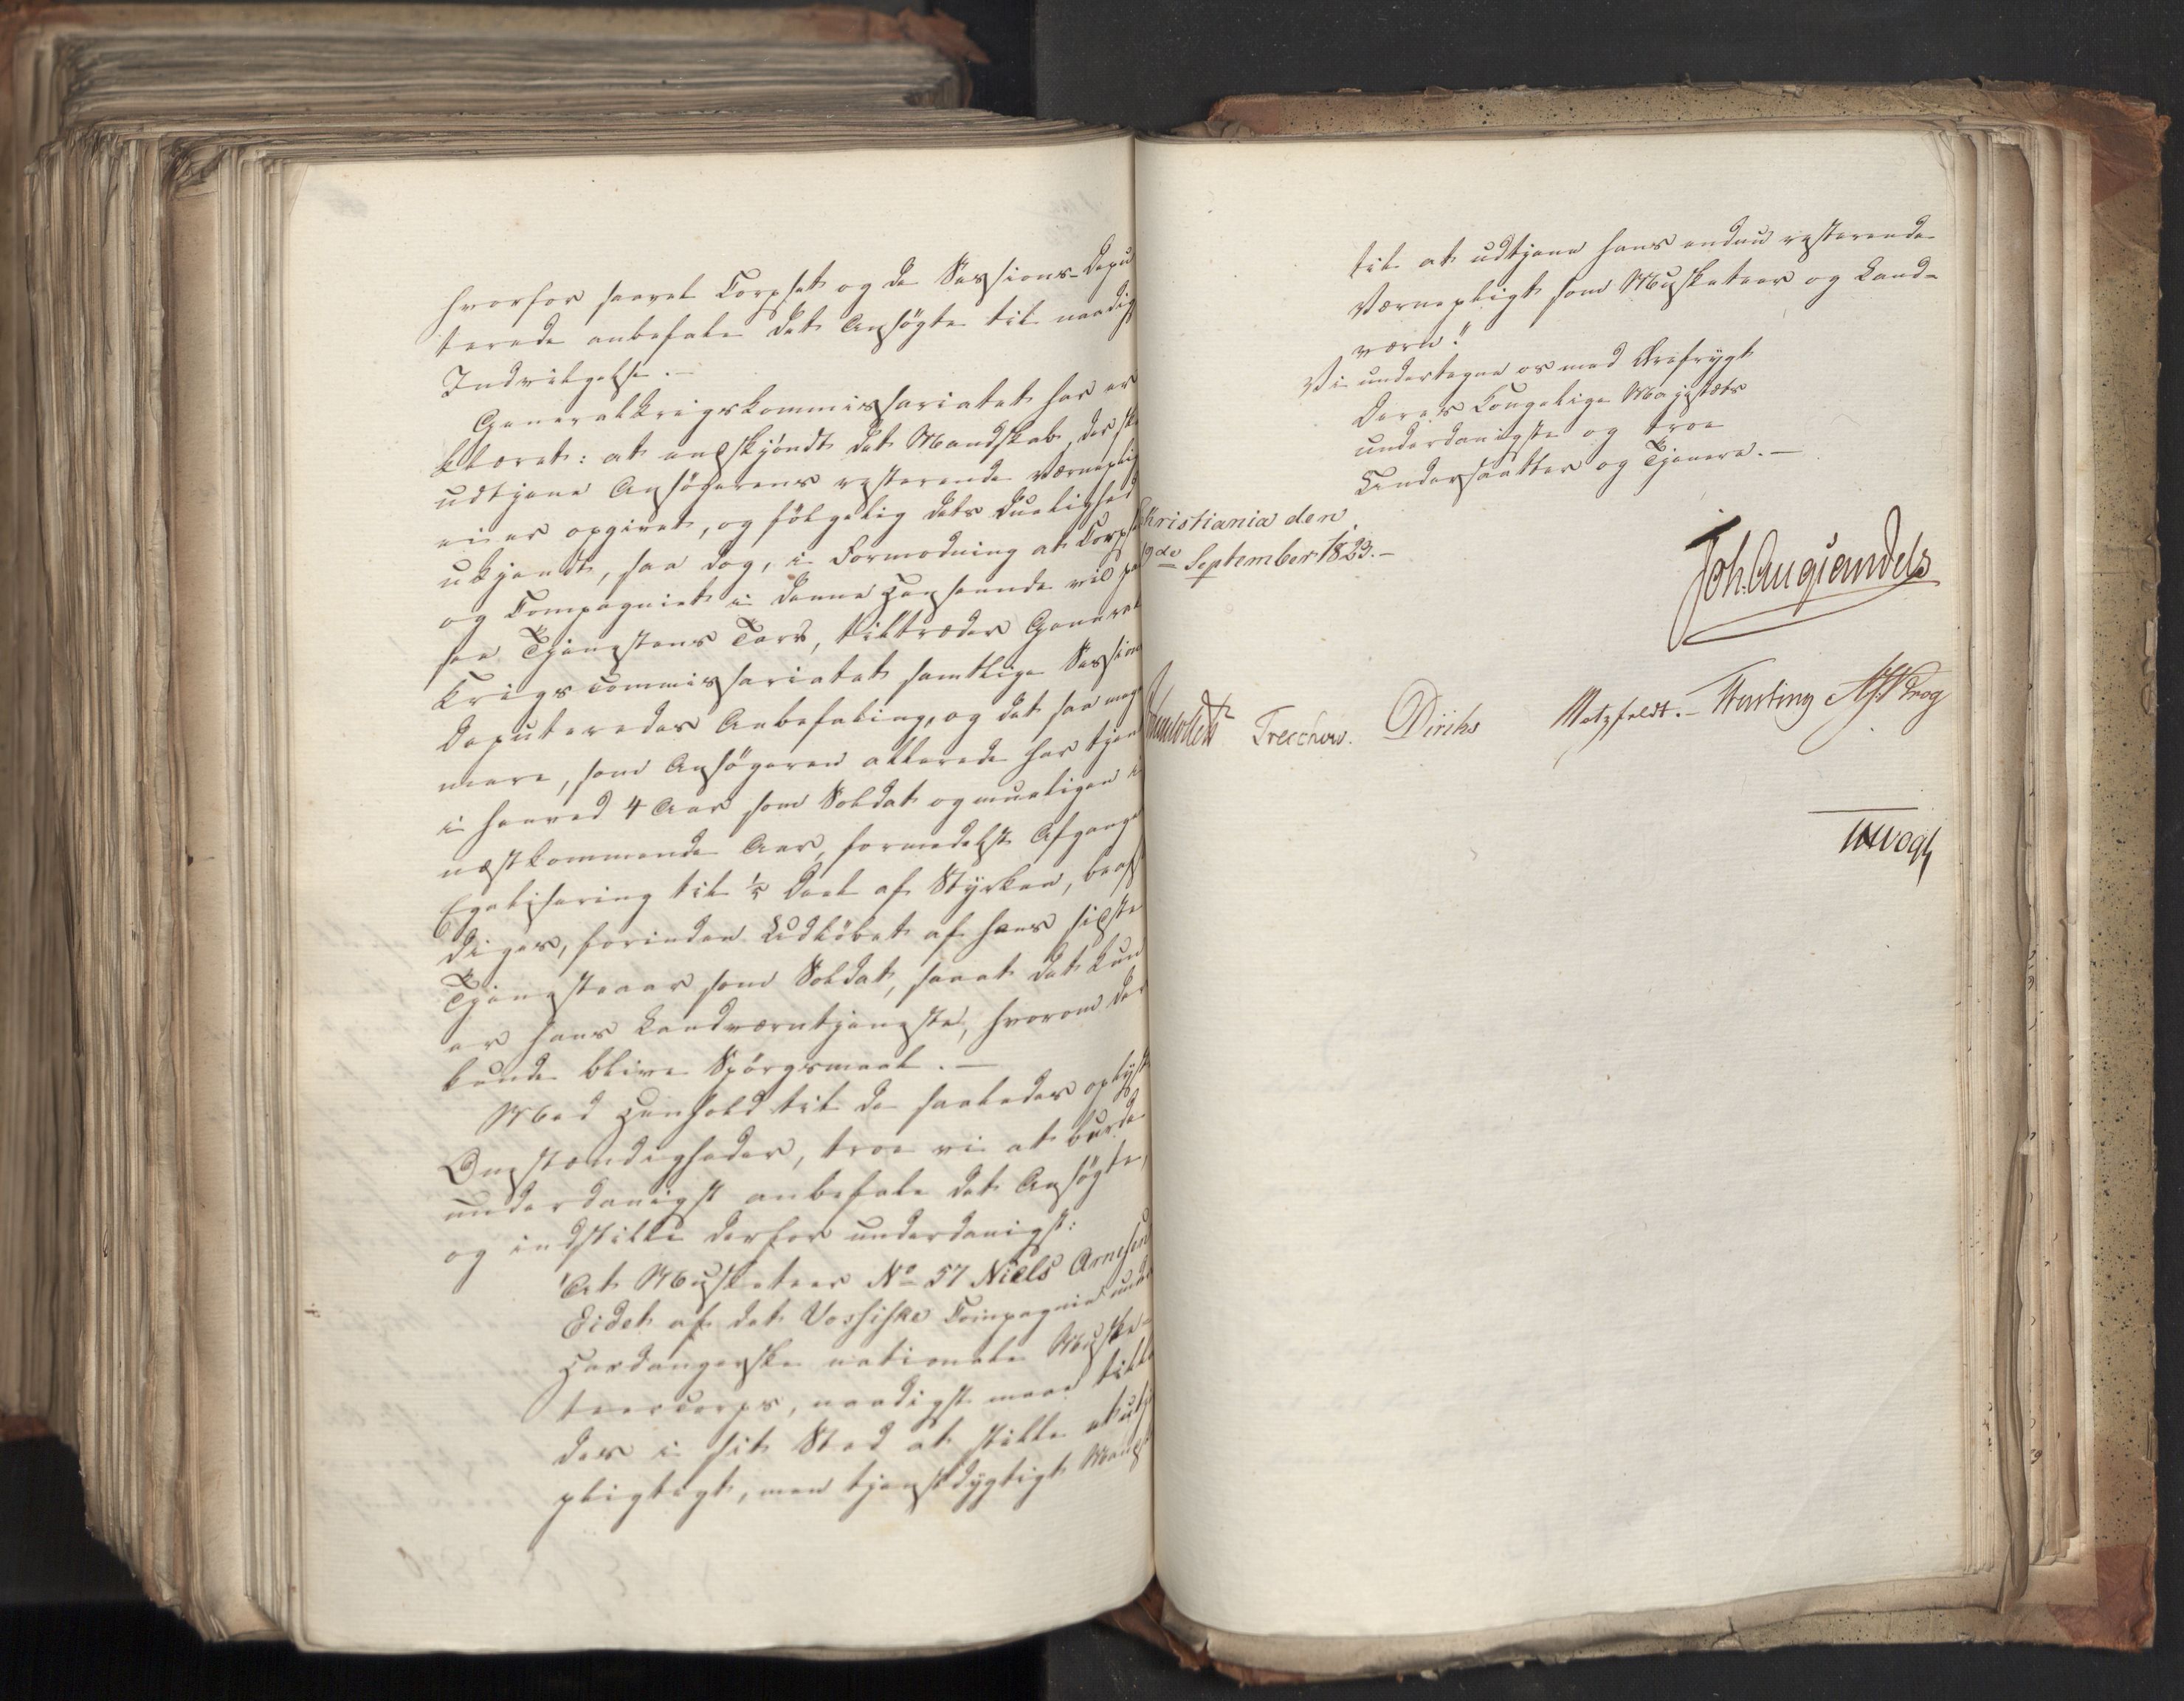 hvorfor saavel Corpset og de Sessions-Depu
terede anbefale det Ansøgte til naadig
Indvilgelse. —
Generalkrigskommissariatet har er
klæret: at endskjøndt det Mandskab, der ska
udtjene Ansøgerens resterende Værneplig
ei er opgivet, og følgelig dets Duelighed
ukjendt, saa dog, i Formodning at Corps
og Compagniet i denne Henseende vil paa
see Tjenestens Tarv, tiltræder General
Krigscommissariatet samtlige Session
Deputeredes Anbefaling, og det saa meget
mere, som Ansøgeren allerede har tjent
i henved 4 Aar som Soldat og mueligen i
næstkommende Aar, formedelst Afgangs
Egalisering til 1/5 Deel af Styrken, beaf
diges, forinden Udløbet af hans sidste
Tjenesteaar som Soldat, saa at det kun
er hans Landværntjeneste, hvorom der
kunde blive Spørgsmaal. —
Med Henhold til de saaledes oplyste
Omstændigheder, troe vi at burde
underdanigst anbefale det Ansøgte,
og indstille derfor underdanigst:
"At Musketeer No 57 Niels Arnesen
Eidet af det Vossiske Compagnie under
Hardangerske nationale Muske-
teercorps, naadigst maae tilla
des i sit Sted at stille et u
pligtigt, men tjenstdygtigt Mand
til at udtjene hans endnu resterende
Værnepligt som Musketeer og Land-
værn."
Vi undertegne os med Ærefrygt
Deres Kongelige Majestæts
underdanigste og troe
Undersaatter og Tjenere. —
Christiania den
9de September 1823. —
Joh. Aug. Sandels
Sommerfeldt Treschow. Diriks Motzfeldt. — Fasting P. Krog
Vogt